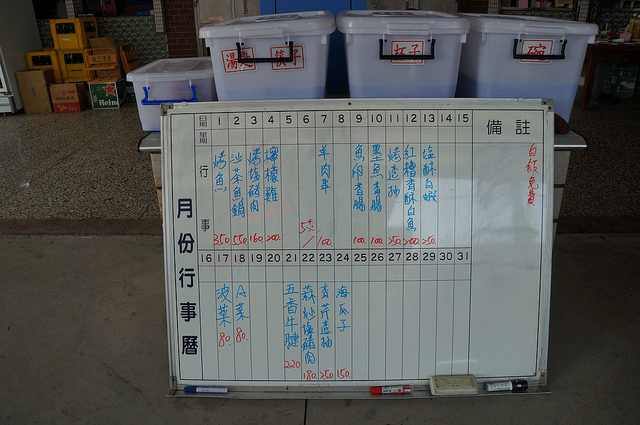 湯匙 筷子
杯子
碗
Hein
日期 1 2 3 4 5 6 7 8 9 10 11 12 13 14 15
星期
行事
烤魚 350
沙茶魚鍋 550
烤塩豬肉 160
檸檬雞 200
5支/
羊肉串 100
魚卵香腸 100
墨魚香腸 100
烤透抽 250
紅糟香酥白魚 200
塩酥白蝦 250
備註
白飯免費
月份行事曆
16 17 18 19 20 21 22 23 24 25 26 27 28 29 30 31
波菜 80.
A菜 80.
五香牛腱 220
蒜炒塩豬肉 180
香芹透抽 250
海瓜子 150